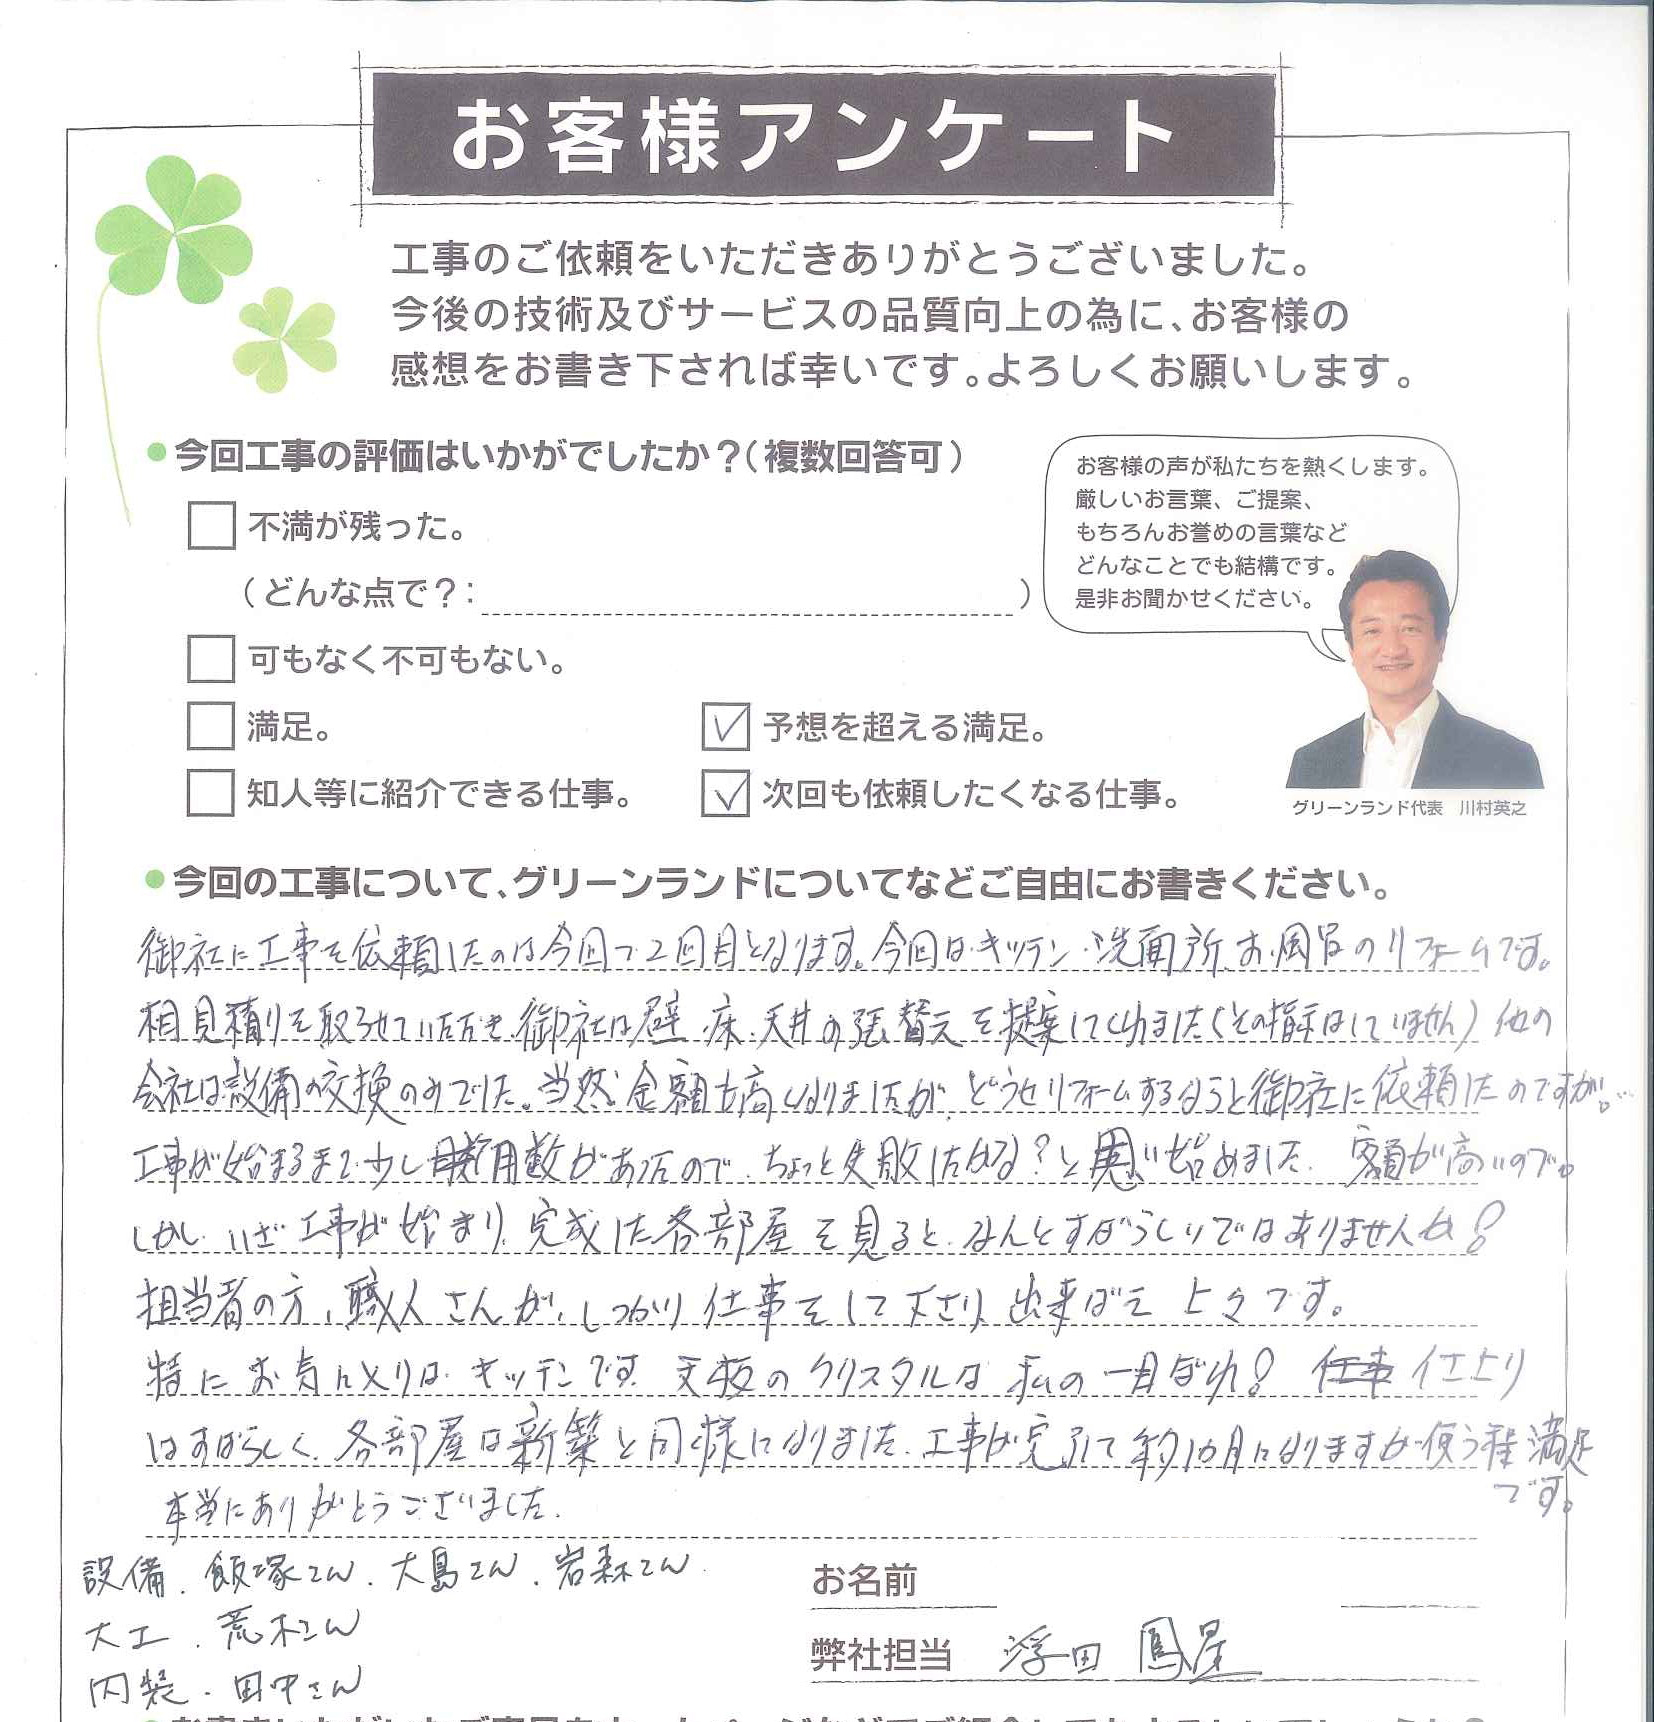 お客様アンケート
工事のご依頼をいただきありがとうございました。
今後の技術及びサービスの品質向上の為に、お客様の
感想をお書き下されば幸いです。よろしくお願いします。
●今回工事の評価はいかがでしたか？（複数回答可）
不満が残った。
（どんな点で？：　）
可もなく不可もない。
満足。
予想を超える満足。
知人等に紹介できる仕事。
次回も依頼したくなる仕事。
お客様の声が私たちを熱くします。
厳しいお言葉、ご提案、
もちろんお誉めの言葉など
どんなことでも結構です。
是非お聞かせください。
グリーンランド代表　川村英之
●今回の工事について、グリーンランドについてなどご自由にお書きください。
御社に工事を依頼したのは今回で2回目となります。今回は、キッチン・洗面所、お風呂のリフォームです。
相見積りを取らせていただき、御社は壁、床、天井の張替えを提案してくれました（その指示はしていません）他の
会社は設備の交換のみでした。当然、金額も高くなりましたが、どうせリフォームするならと御社に依頼したのですが…
工事が始まるまで少し日数があったので、ちょっと失敗したかな？と思い始めました。金額が高いので。
しかし、いざ工事が始まり、完成した各部屋を見ると、なんとすばらしいではありませんか！
担当者の方、職人さんが、しっかり仕事をして下さり、出来ばえ上々です。
特にお気に入りは、キッチンです。天板のクリスタルは私の一目ぼれ！仕上り
はすばらしく、各部屋は新築と同様になりました。工事が完了して約1ヵ月になりますが使う程満足
です。
本当にありがとうございました。
設備．飯塚さん．大島さん．岩森さん
大工．荒木さん
内装．田中さん
お名前
弊社担当　浮田　鳳星